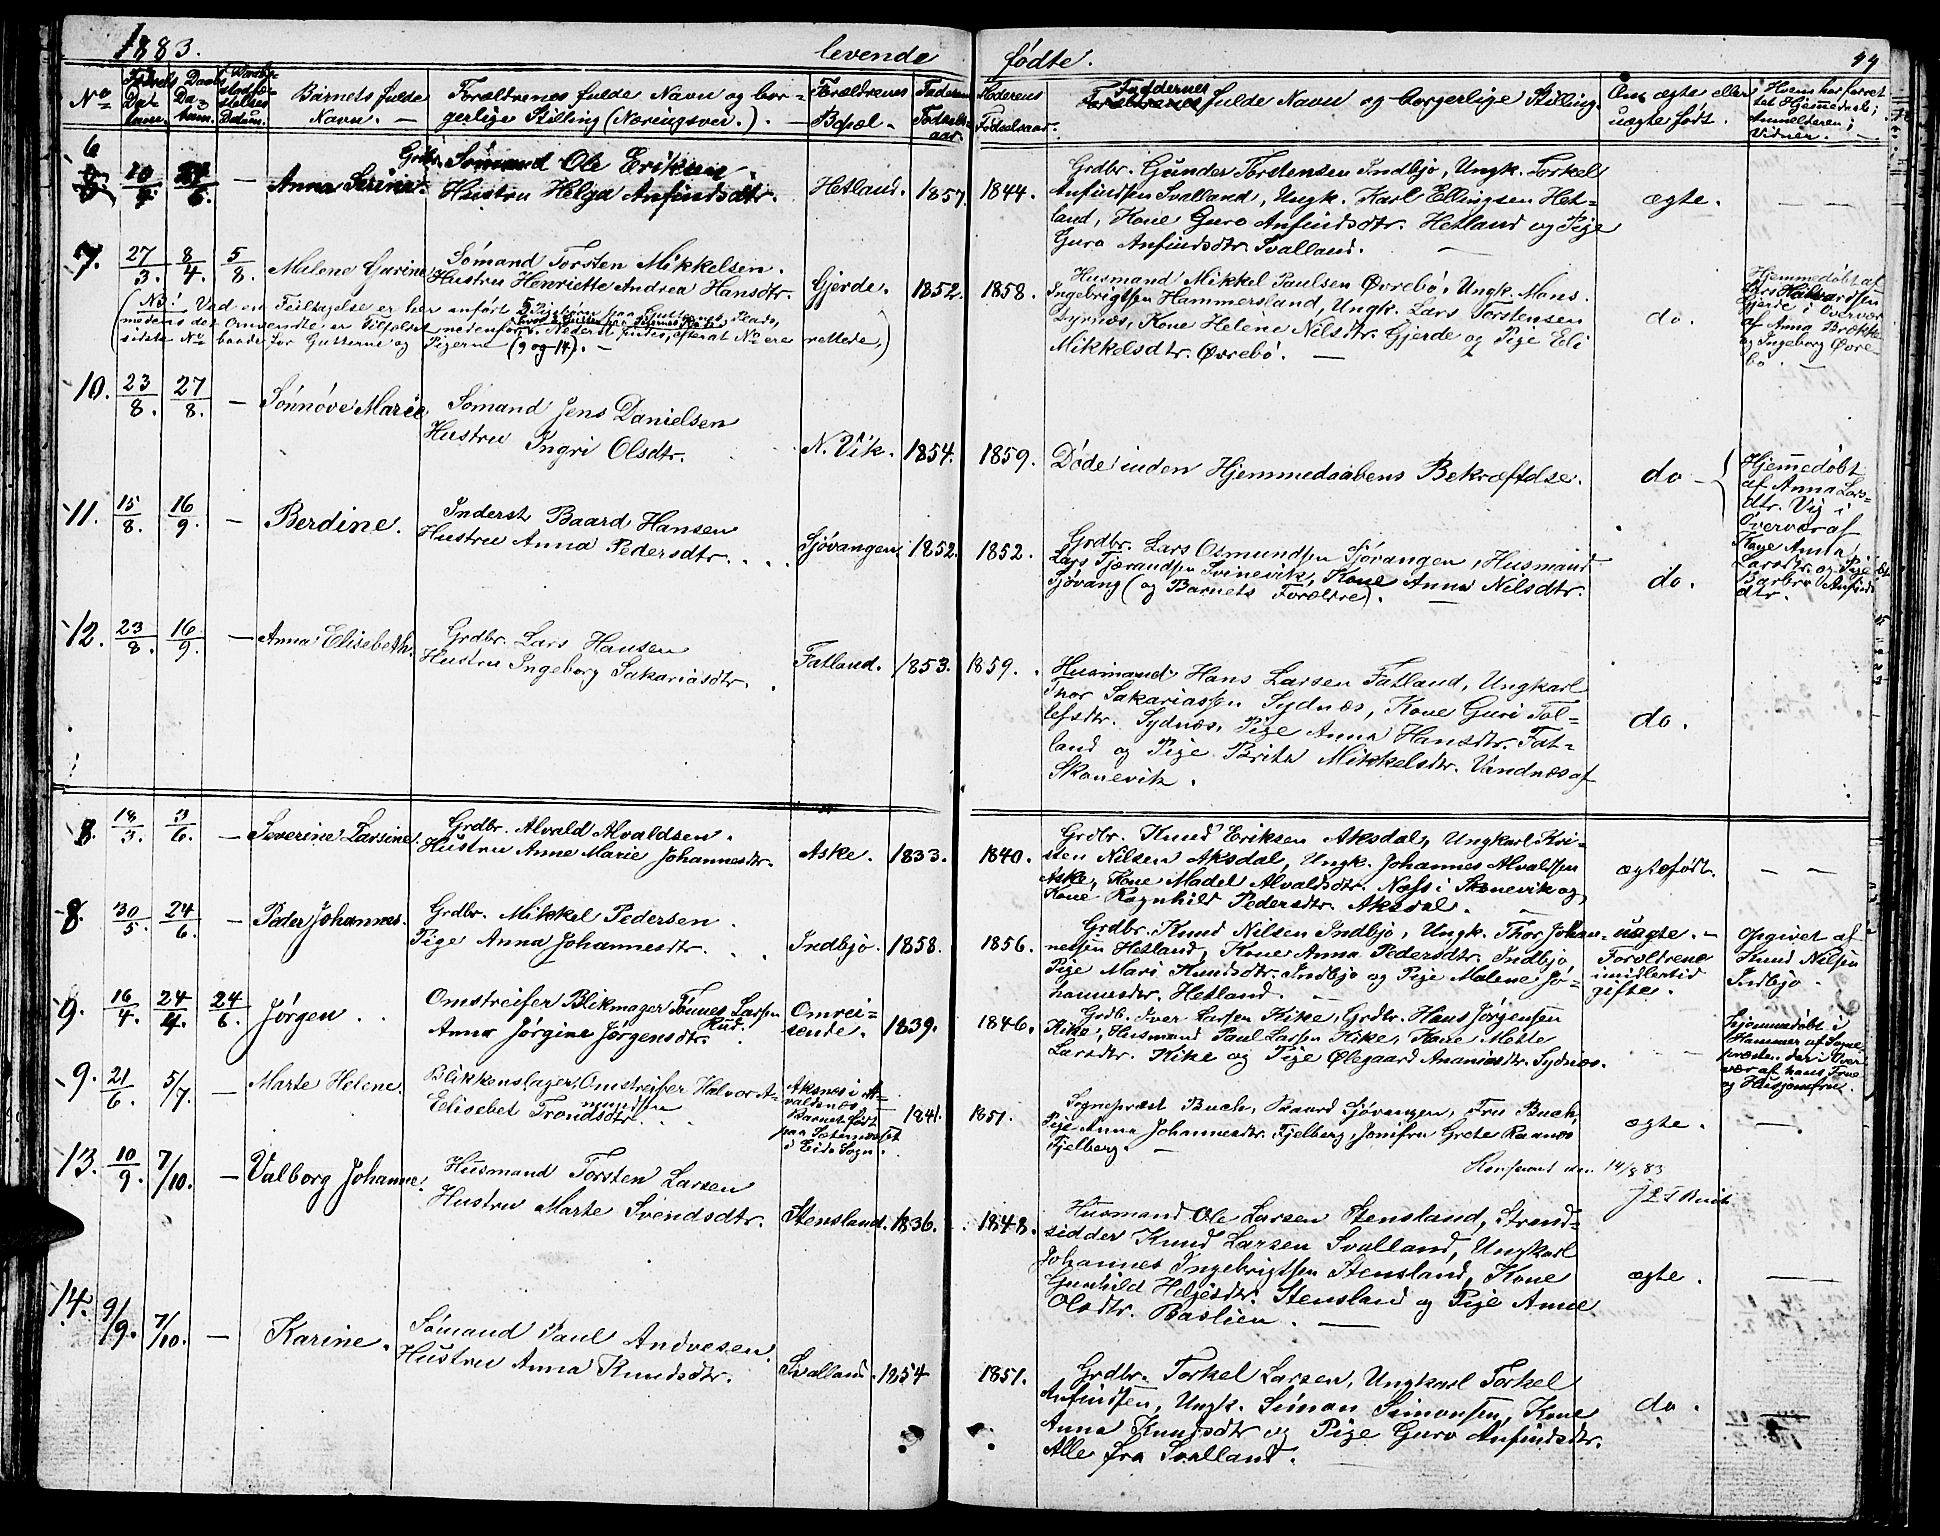 1883.
levende
fødte.
49
No
Fødsels Datum.
Daabs Datum.
Daabs-stadfæ-stelses Datum.
Barnets fulde Navn. —
Forældrenes fulde Navn og bor-gerlige Stilling (Næringsvei.). —
Forældrenes Bopæl.
Faderens Fødselsaar.
Moderens Fødselsaar.
Faddernes fulde Navn og borgerlige Stilling.
Om ægte eller uægte født.
Hvem har forret-tet Hjemmedaab; Anmelderen; Vidner. —
6
10/4
—
Anna Serine.
Grdbr. Sømand Ole Eriksen.
Hustru Helga Anfindsdtr.
Hetland.
1857.
1844.
Grdbr. Gunder Torstensen Indbjo, Ungk. Torkel
Anfindsen Svalland, Ungk. Karl Ellingsen Het-
land, Kone Guro Anfindsdtr. Hetland og Pige
Guro Anfindsdtr. Svalland. —
ægte.
— —
7.
27/3.
8/4.
5/8.
Malene Gurine
Sømand Torsten Mikkelsen.
Hustru Henriette Andrea Hansdtr.
Gjerde.
1852.
1858.
Husmand Mikkel Paulsen Øvrebø, Ungk. Mons
Ingebrigtsen Hammersland, Ungk. Lars Torstensen
Dyrnæs, Kone Helene Nilsdtr. Gjerde og Pige Eli
Mikkelsdtr. Øvrebø. —
do.
Hjemmedøbt af
Lars Halvardsen
Gjerde i Overvær
af Anna Brække
og Ingeborg Øvre-
bø.
(NB! Ved en Feiltagelse er her anført 5 Pigebørn paa Gutternes Plads,
medens det Omvendte er Tilfældet nedenfor,
sidste No baade for Gutterne og Pigerne (9 og 14). — rettede.)
10.
23/8.
27/8.
—
Sønnøve Marie
Sømand Jens Danielsen
Hustru Ingri Olsdtr.
N. Vik.
1854.
1859.
Døde inden Hjemmedaabens Bekræftelse.
do
Hjemmedøbt
af Anna Lars-
dtr. Vig i
Overvær af
Kone Anna
Larsdtr. og Pige
Barbro Anfinds-
dtr.
11.
15/8.
16/9.
—
Berdine.
Inderst Baard Hansen
Hustru Anna Pedersdtr.
Sjøvangen
1852.
1852.
Grdbr. Lars Osmundsen Sjøvangen, Husmand
Lars Tjerandsen Svinevik, Kone Anna Nilsdtr.
Sjøvang (og Barnets Forældre). —
do.
12.
23/8.
16/9.
—
Anna Elisebeth.
Grdbr. Lars Hansen
Hustru Ingeborg Sakariasdtr.
Fatland.
1853.
1859.
Husmand Hans Larsen Fatland, Ungkarl
Thor Sakariassen Sydnæs, Kone Guri Tol-
lefsdtr. Sydnæs, Pige Anna Hansdtr. Fat-
land og Pige Brita Mikkelsdtr. Vandnæs af
Skonevik.
do.
8.
18/3.
3/6.
—
Severine Larsine.
Grdbr. Alvald Alvaldsen.
Hustru Anne Marie Johannesdtr.
Aske.
1833.
1840.
Grdbr. Knud Eriksen Aksdal, Ungkarl Kri-
sten Nilsen Aksdal, Ungk. Johannes Alvaldsen
Aske, Kone Madel Alvaldsdtr. Næss i Skonevik og
Kone Ragnhild Pedersdtr. Aksdal. —
ægtefødt.
— —
8.
30/5.
24/6.
—
Peder Johannes.
Grdbr. Mikkel Pedersen.
Pige Anna Johannesdtr.
Indbjo.
1858.
1856.
Grdbr. Knud Nilsen Indbjo, Ungk. Thor Johan-
nessen Hetland, Kone Anna Pedersdtr. Indbjo
Pige Mari Knudsdtr. Indbjo og Pige Malene Jo-
hannesdtr. Hetland. —
uægte. —
Forældrene
imidlertid
gifte.
Opgivet af
Knud Nilsen
Indbjo.
9.
16/4.
24/4.
24/6.
Jørgen.
Omstreifer Blikmager Tønnes Larsen
Anna Jørgine Jørgensdtr.
Omrei-
sende.
1839.
1846.
Grdb. Iver Larsen Kike, Grdbr. Hans Jørgensen
Kike, Husmand Paul Larsen Kike, Kone Mette
Larsdtr. Kike og Pige Ølegaard Ananiasdtr. Sydnæs.
Hjemmedøbt i
Hammer af Sogne-
præsten der i Over-
vær af hans Frue
og Husjomfru.
9.
21/6.
5/7.
—
Marte Helene.
Blikkenslager, Omstreifer Halvor A-
mundsen
Elisebet Trondsdtr.
Aksnes i A-
valdsnæs
Barnet født
paa Sæternæset
i Eids Sogn.
1841.
1851.
Sognepræst Buch, Baard Sjøvangen, Fru Buch,
Pige Anna Johannesdtr. Fjelberg, Jomfru Grete Raanæs
Fjelberg. —
ægte.
—
14/8 83
J L S Buch
13.
10/9.
7/10.
—
Valborg Johanne.
Husmand Torsten Larsen
Hustru Marte Svendsdtr.
Stensland.
1836.
1848.
Husmand Ole Larsen Stensland, Strand-
sidder Knud Larsen Svalland, Ungkarl
Johannes Ingebrigtsen Stensland, Kone
Gunhild Helgesdtr. Stensland og Pige Anne
Olsdtr. Baslien. —
ægte.
—
14.
9/9.
7/10.
—
Karine.
Sømand Paul Andresen.
Hustru Anna Knudsdtr.
Svalland.
1854
1851.
Grdbr. Torkel Larsen, Ungkarl Torkel
Anfindsen, Ungk. Simon Simonsen, Kone
Anna Knudsdtr og Pige Guro Anfindsdtr.
Alle fra Svalland.
do.